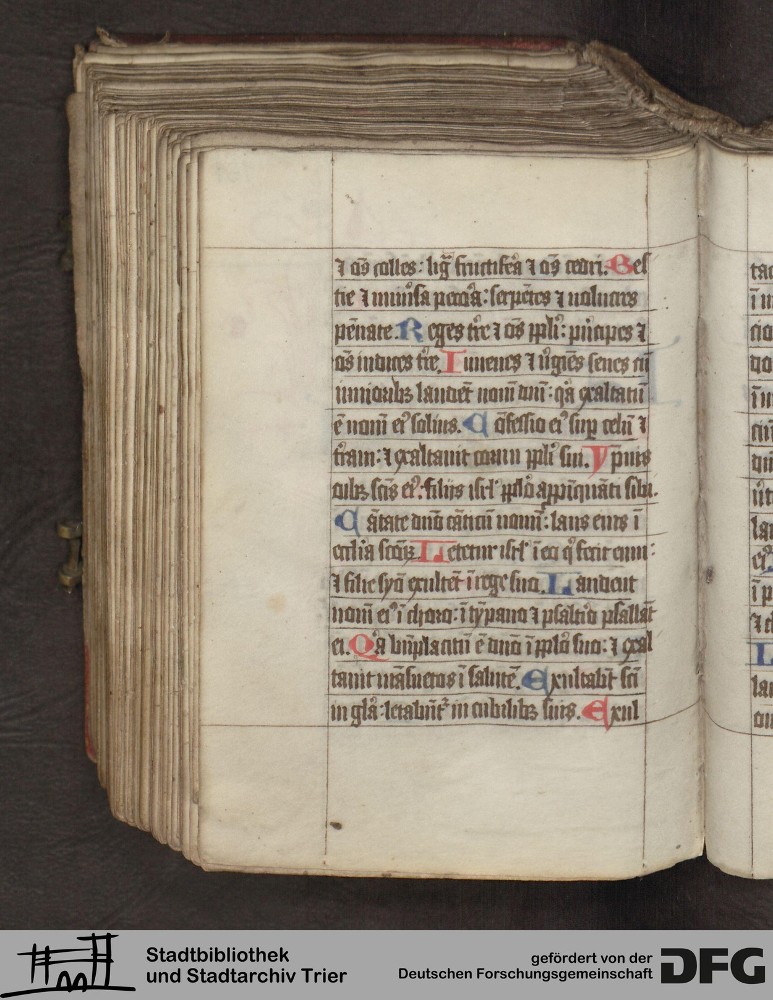 ⁊ oe̅s colles: lig̅ fructifer̃a ⁊ oe̅s cedri. Bes
tie ⁊ uniu͛sa pecora: serpe̅tes ⁊ uolucres
pe̅nate. Reges t͛re ⁊ oe̅s ppl̓i: pri̅cipes ⁊
oe̅s iudices t͛re. Iuuenes ⁊ u͛gi̅es senes cu̅
iunioribꝫ laudent nom̅ dn̅i: q̓a exaltatu̅
e̅ nom̅ ei᷒ solius. Co̅fessio ei᷒ sup̱ celu̅ ⁊
t͛ram: ⁊ exaltauit cornu ppl̓i sui. Ympnis
oibꝫ sc̅is ei᷒: filiis isrl̓ pplo̓ appi̅qua̅ti sibi.
Ca̅tate dn̅o ca̅ticu̅ nouu̅: laus eius i̅
eccl̓ia sc̅oꝝ. Letetur isrl̓ i̅ eo q̓ fecit eum:
⁊ filie syo̅ exulte̅t i̅ rege suo. Laudent
nom̅ ei᷒ i̅ choro: i̅ ty̅pano ⁊ psalt͛io psalla̅t
ei. Q̓a bn̅placitu̅ e̅ dn̅o i̅ pplo̓ suo: ⁊ exal
tauit ma̅suetos i̅ salute̅. Exultabu̅t sc̅i
in gl̓a: letabu̅tᷣ in cubilibꝫ suis. Exul
Stadtbibliothek
und Stadtarchiv Trier
gefördert von der
Deutschen Forschungsgemeinschaft
DFG